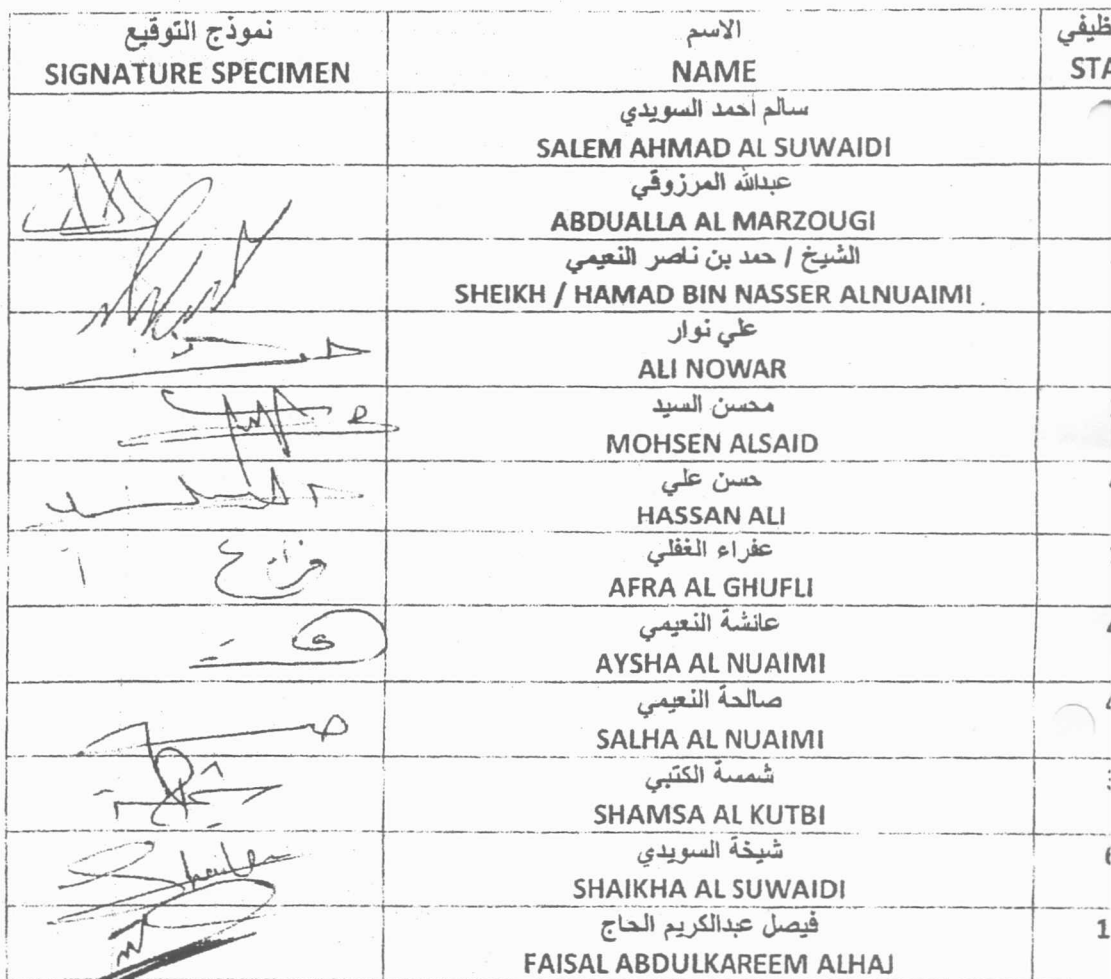 نموذج التوقيع
SIGNATURE SPECIMEN
الاسم
NAME
ظيفي
STA
سالم احمد السويدي
SALEM AHMAD AL SUWAIDI
عبدالله المرزوقي
ABDUALLA AL MARZOUGI
الشيخ / حمد بن ناصر النعيمي
SHEIKH / HAMAD BIN NASSER ALNUAIMI
علي نوار
ALI NOWAR
محسن السيد
MOHSEN ALSAID
حسن علي
HASSAN ALI
عفراء الغفلي
AFRA AL GHUFLI
عائشة النعيمي
AYSHA AL NUAIMI
صالحة النعيمي
SALHA AL NUAIMI
شمسة الكتبي
SHAMSA AL KUTBI
شيخة السويدي
SHAIKHA AL SUWAIDI
6
فيصل عبدالكريم الحاج
FAISAL ABDULKAREEM ALHAJ
1